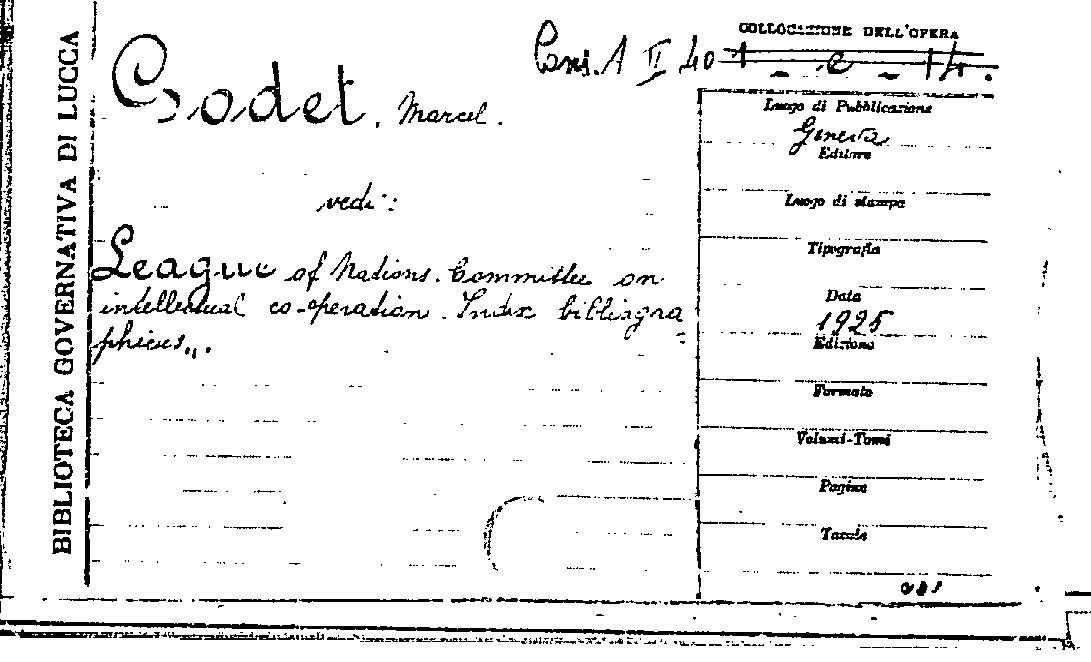 BIBLIOTECA GOVERNATIVA DI LUCCA
Godet, Marcel.
vedi:
League of Nations. Committee on
intellectual co-operation. Index bibliogra
phicus,,.
COLLOCAZIONE DELL'OPERA
Cons. A II 40
1 - e - 14.
Luogo di Pubblicazione
Ginevra
Editore
Luogo di stampa
Tipografia
Data
1925
Edizione
Formato
Volumi-Tomi
Pagine
Tavole